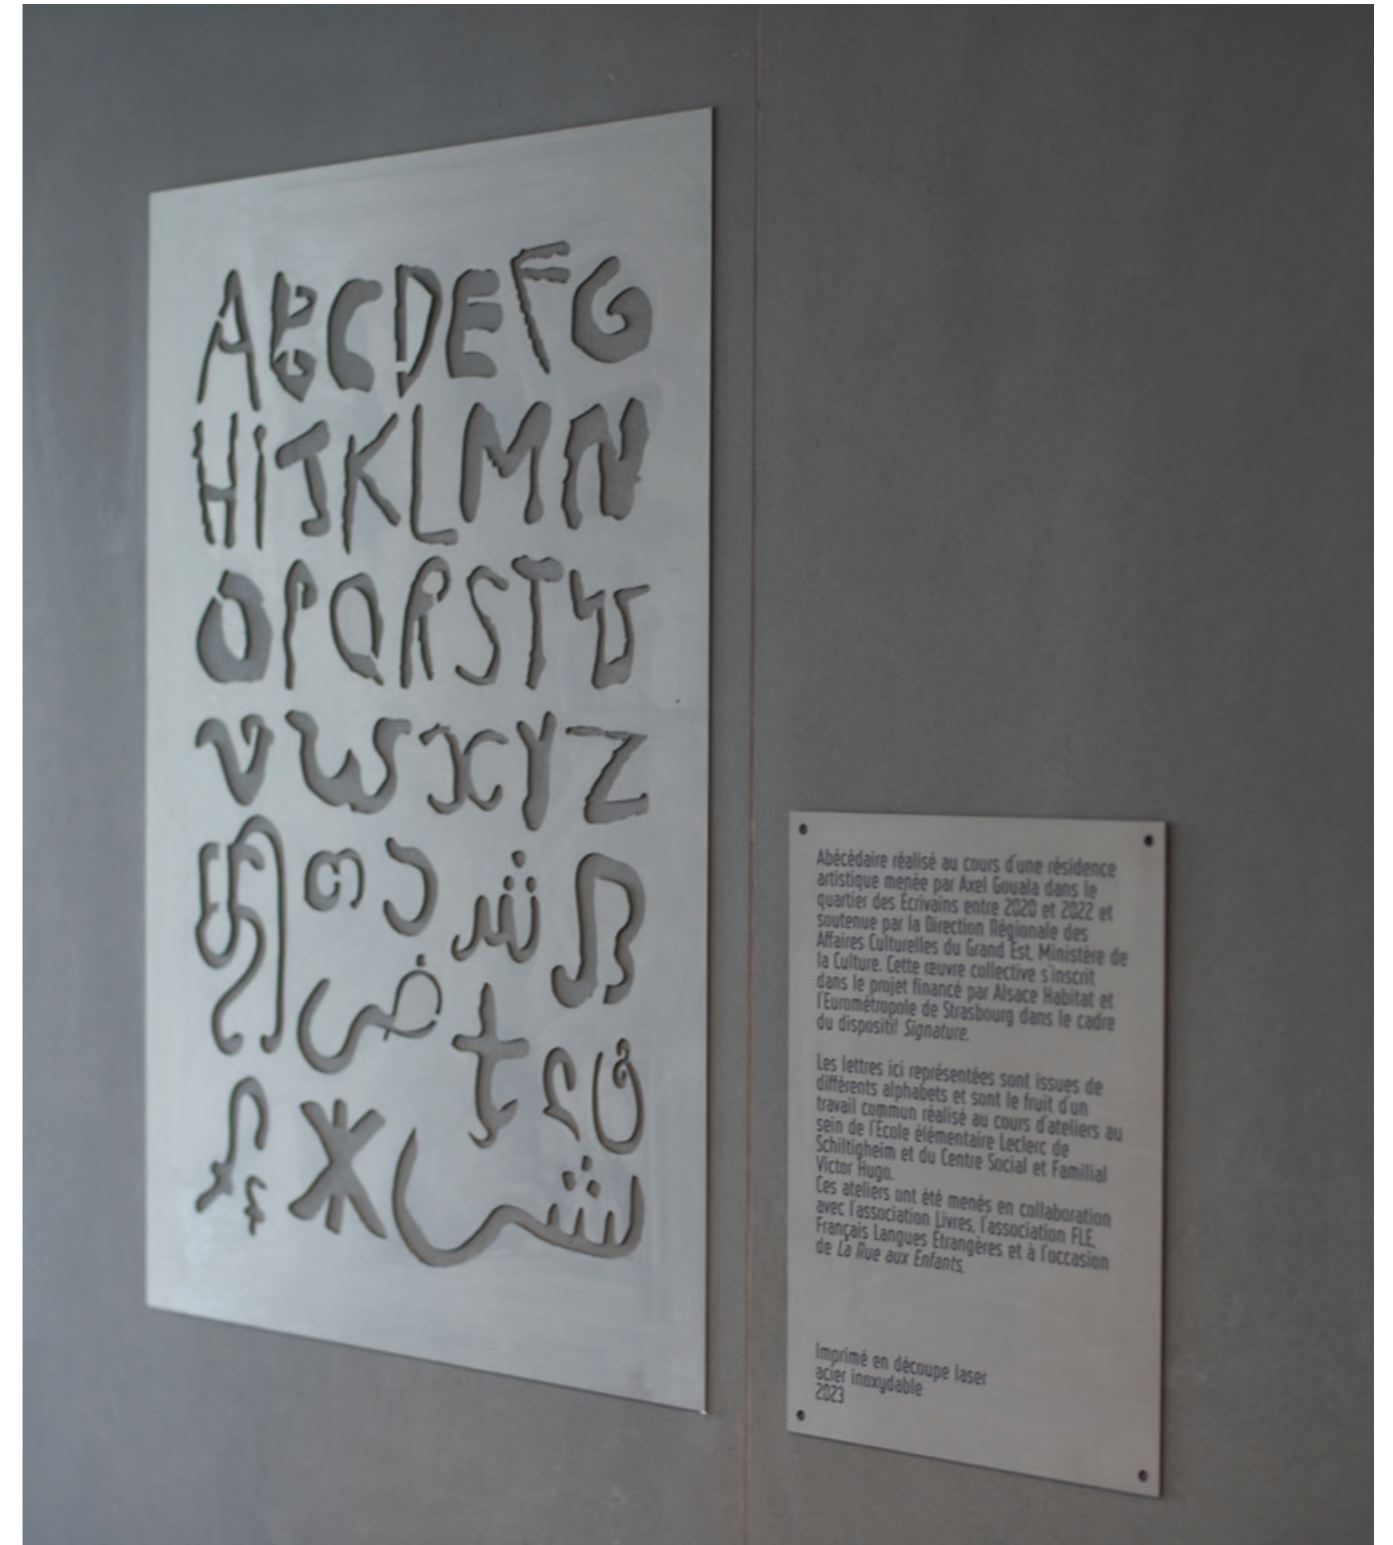 ABCDEFG
HIJKLMN
OPQRSTU
VWXYZ
Abécédaire réalisé au cours d'une résidence
artistique menée par Axel Gouala dans le
quartier des Écrivains entre 2020 et 2022 et
soutenue par la Direction Régionale des
Affaires Culturelles du Grand Est, Ministère de
la Culture. Cette œuvre collective s'inscrit
dans le projet financé par Alsace Habitat et
l'Eurométropole de Strasbourg dans le cadre
du dispositif Signature.
Les lettres ici représentées sont issues de
différents alphabets et sont le fruit d'un
travail commun réalisé au cours d'ateliers au
sein de l'École élémentaire Leclerc de
Schiltigheim et du Centre Social et Familial
Victor Hugo.
Ces ateliers ont été menés en collaboration
avec l'association Livres, l'association FLE,
Français Langues Étrangères et à l'occasion
de La Rue aux Enfants.
Imprimé en découpe laser
acier inoxydable
2023